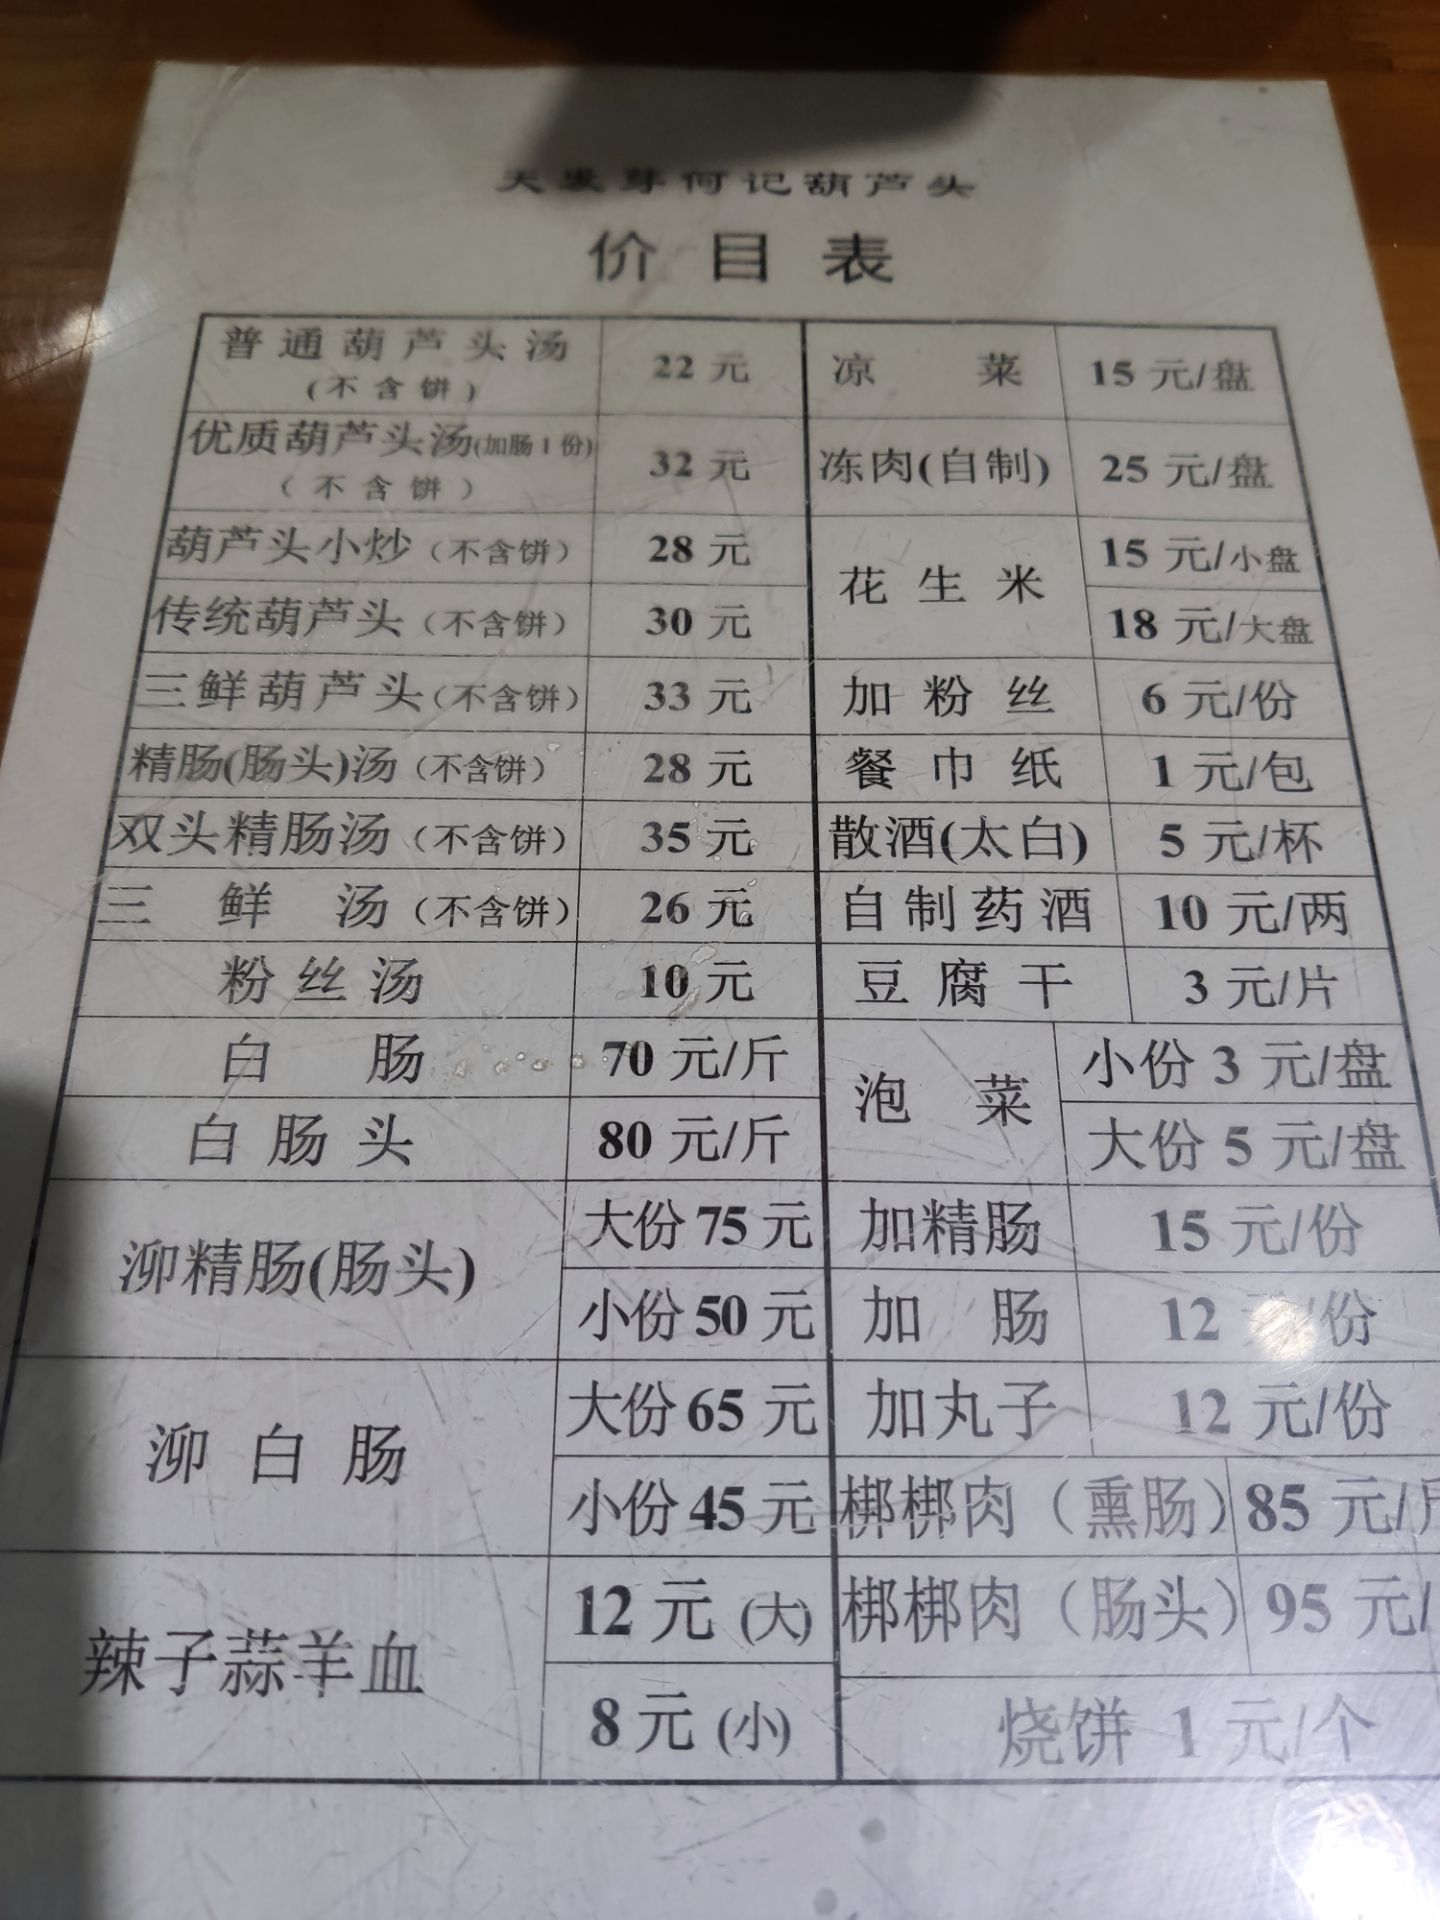 天发芽何记葫芦头
价目表
普通葫芦头汤 22 元 凉 菜 15 元/盘
(不含饼)
优质葫芦头汤(加肠1份) 32 元 冻肉(自制) 25 元/盘
(不含饼)
葫芦头小炒(不含饼) 28 元 花生米 15 元/小盘
传统葫芦头(不含饼) 30 元 18 元/大盘
三鲜葫芦头(不含饼) 33 元 加粉丝 6 元/份
精肠(肠头)汤(不含饼) 28 元 餐巾纸 1 元/包
双头精肠汤(不含饼) 35 元 散酒(太白) 5 元/杯
三 鲜 汤(不含饼) 26 元 自制药酒 10 元/两
粉丝汤 10 元 豆腐干 3 元/片
白 肠 70 元/斤 泡 菜 小份 3 元/盘
白肠头 80 元/斤 大份 5 元/盘
泖精肠(肠头) 大份 75 元 加精肠 15 元/份
小份 50 元 加 肠 12 元/份
泖白肠 大份 65 元 加丸子 12 元/份
小份 45 元 梆梆肉(熏肠) 85 元/斤
辣子蒜羊血 12 元 (大) 梆梆肉(肠头) 95 元/
8 元 (小) 烧饼 1 元/个